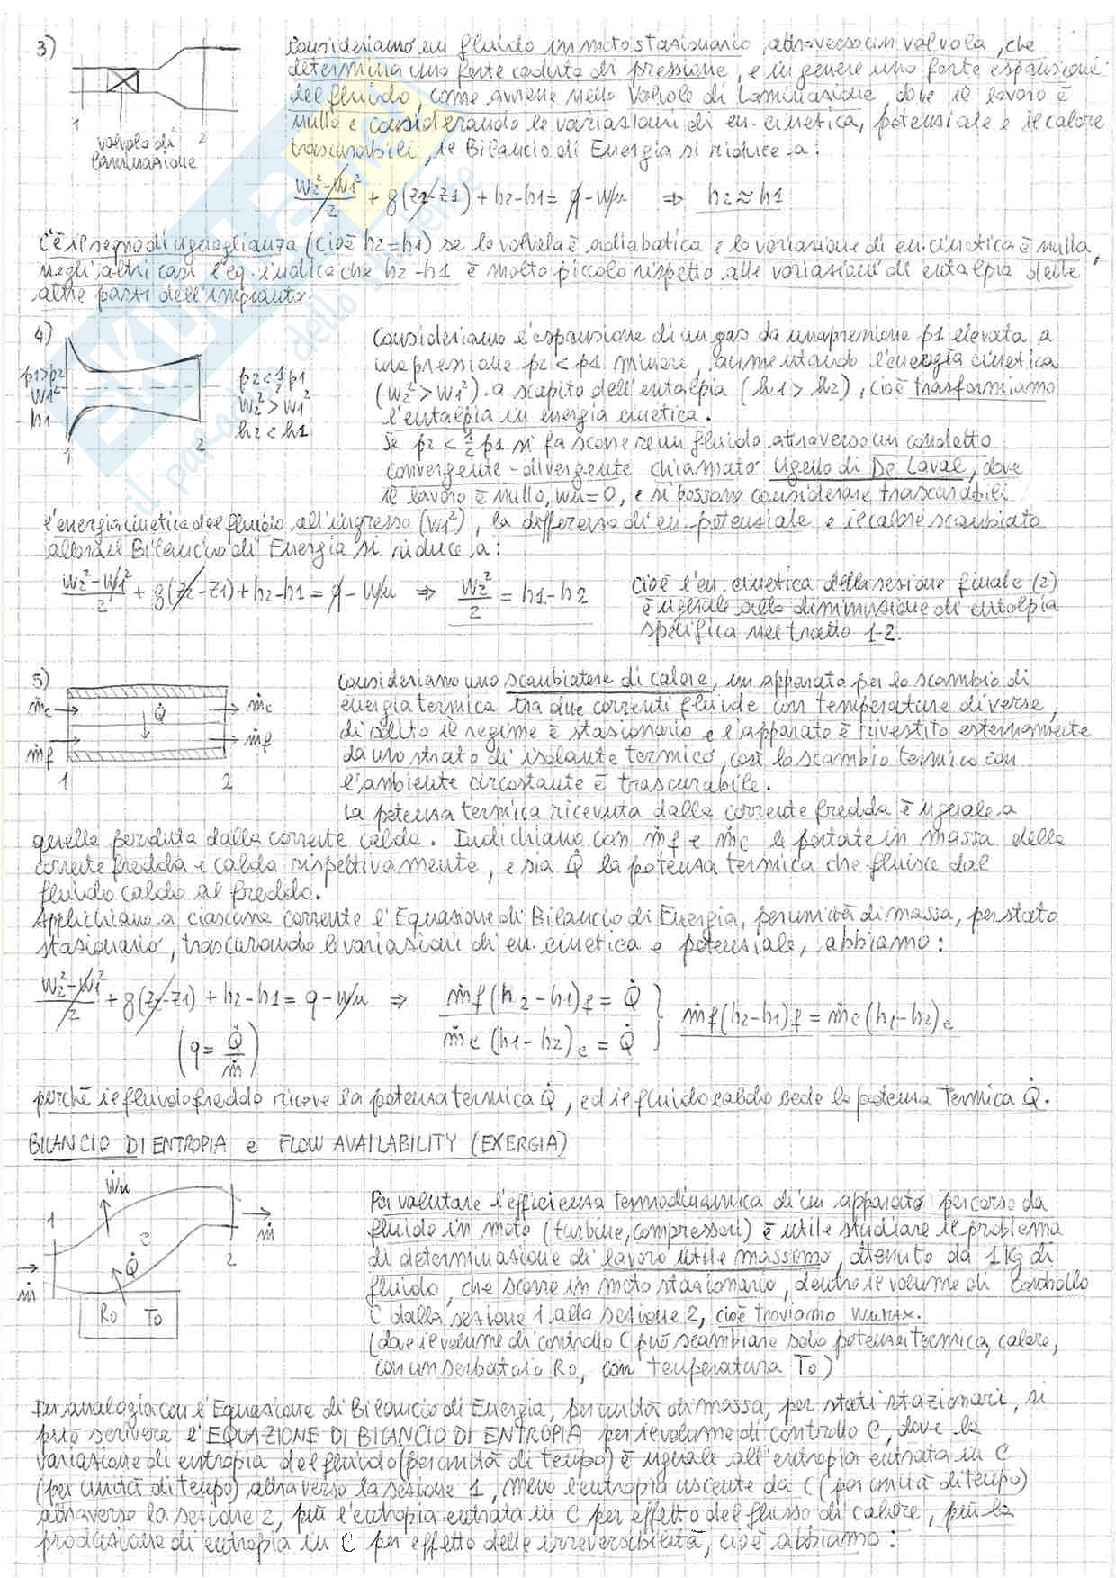 3)
Consideriamo un fluido in moto stazionario, attraverso un valvola, che
determina una forte caduta di pressione, e in genere una forte espansione
del fluido, come avviene nelle Valvole di Laminazione, dove il lavoro è
nullo e considerando le variazioni di en. cinetica, potenziale e il calore
trascurabili, il Bilancio di Energia si riduce a:
1 valvola di laminazione 2
w2²-w1²/2 + g(z2-z1) + h2-h1 = q-wu ⇒ h2≈h1
C'è il segno di uguaglianza (cioè h2=h1) se la valvola è adiabatica e la variazione di en. cinetica è nulla,
negli altri casi l'eq. indica che h2-h1 è molto piccolo rispetto alle variazioni di entalpia delle
altre parti dell'impianto.
4)
Consideriamo l'espansione di un gas da una pressione p1 elevata a
una pressione p2<p1 minore, aumentando l'energia cinetica
(w2²>w1²) a scapito dell'entalpia (h1>h2), cioè trasformiamo
l'entalpia in energia cinetica.
p1>p2
w1²
h1
1
p2<½p1
w2²>w1²
h2<h1
2
Se p2<½p1 si fa scorrere un fluido attraverso un condotto
convergente-divergente chiamato Ugello di De Laval, dove
il lavoro è nullo, wu=0, e si possono considerare trascurabili
l'energia cinetica del fluido all'ingresso (w1²), la differenza di en. potenziale e il calore scambiato
allora il Bilancio di Energia si riduce a:
w2²-w1²/2 + g(z2-z1) + h2-h1 = q-wu ⇒ w2²/2 = h1-h2
cioè l'en. cinetica della sezione finale (2)
è uguale alla diminuzione di entalpia
specifica nel tratto 1-2.
5)
Consideriamo uno scambiatore di calore, un apparato per lo scambio di
energia termica tra due correnti fluide con temperature diverse,
di solito il regime è stazionario e l'apparato è rivestito esternamente
da uno strato di isolante termico, così lo scambio termico con
l'ambiente circostante è trascurabile.
ṁc Q̇ ṁc
ṁf ṁf
1 2
La potenza termica ricevuta dalla corrente fredda è uguale a
quella perduta dalla corrente calda. Indichiamo con ṁf e ṁc le portate in massa della
corrente fredda e calda rispettivamente, e sia Q̇ la potenza termica che fluisce dal
fluido caldo al freddo.
Applichiamo a ciascuna corrente l'Equazione di Bilancio di Energia, per unità di massa, per stato
stazionario, trascurando le variazioni di en. cinetica e potenziale, abbiamo:
w2²-w1²/2 + g(z2-z1) + h2-h1 = q-wu ⇒ ṁf(h2-h1)f = Q̇
ṁc(h1-h2)c = Q̇ } ṁf(h2-h1)f = ṁc(h1-h2)c
(q = Q̇/ṁ)
perché il fluido freddo riceve la potenza termica Q̇, ed il fluido caldo cede la potenza Termica Q̇.
BILANCIO DI ENTROPIA e FLOW AVAILABILITY (EXERGIA)
Ẇu
1 ṁ
C
Q̇ 2
ṁ
R0 T0
Per valutare l'efficienza termodinamica di un apparato percorso da
fluido in moto (turbine, compressori) è utile studiare il problema
di determinazione di lavoro utile massimo, ottenuto da 1Kg di
fluido, che scorre in moto stazionario, dentro il volume di Controllo
C dalla sezione 1 alla sezione 2, cioè troviamo wumax.
(dove il volume di controllo C può scambiare solo potenza termica, calore,
con un serbatoio R0, con temperatura T0)
In analogia con l'Equazione di Bilancio di Energia, per unità di massa, per stati stazionari, si
può scrivere l'EQUAZIONE DI BILANCIO DI ENTROPIA per il volume di controllo C, dove la
variazione di entropia del fluido (per unità di tempo) è uguale all'entropia entrata in C
(per unità di tempo) attraverso la sezione 1, meno l'entropia uscente da C (per unità di tempo)
attraverso la sezione 2, più l'entropia entrata in C per effetto del flusso di calore, più la
produzione di entropia in C per effetto delle irreversibilità, cioè abbiamo: